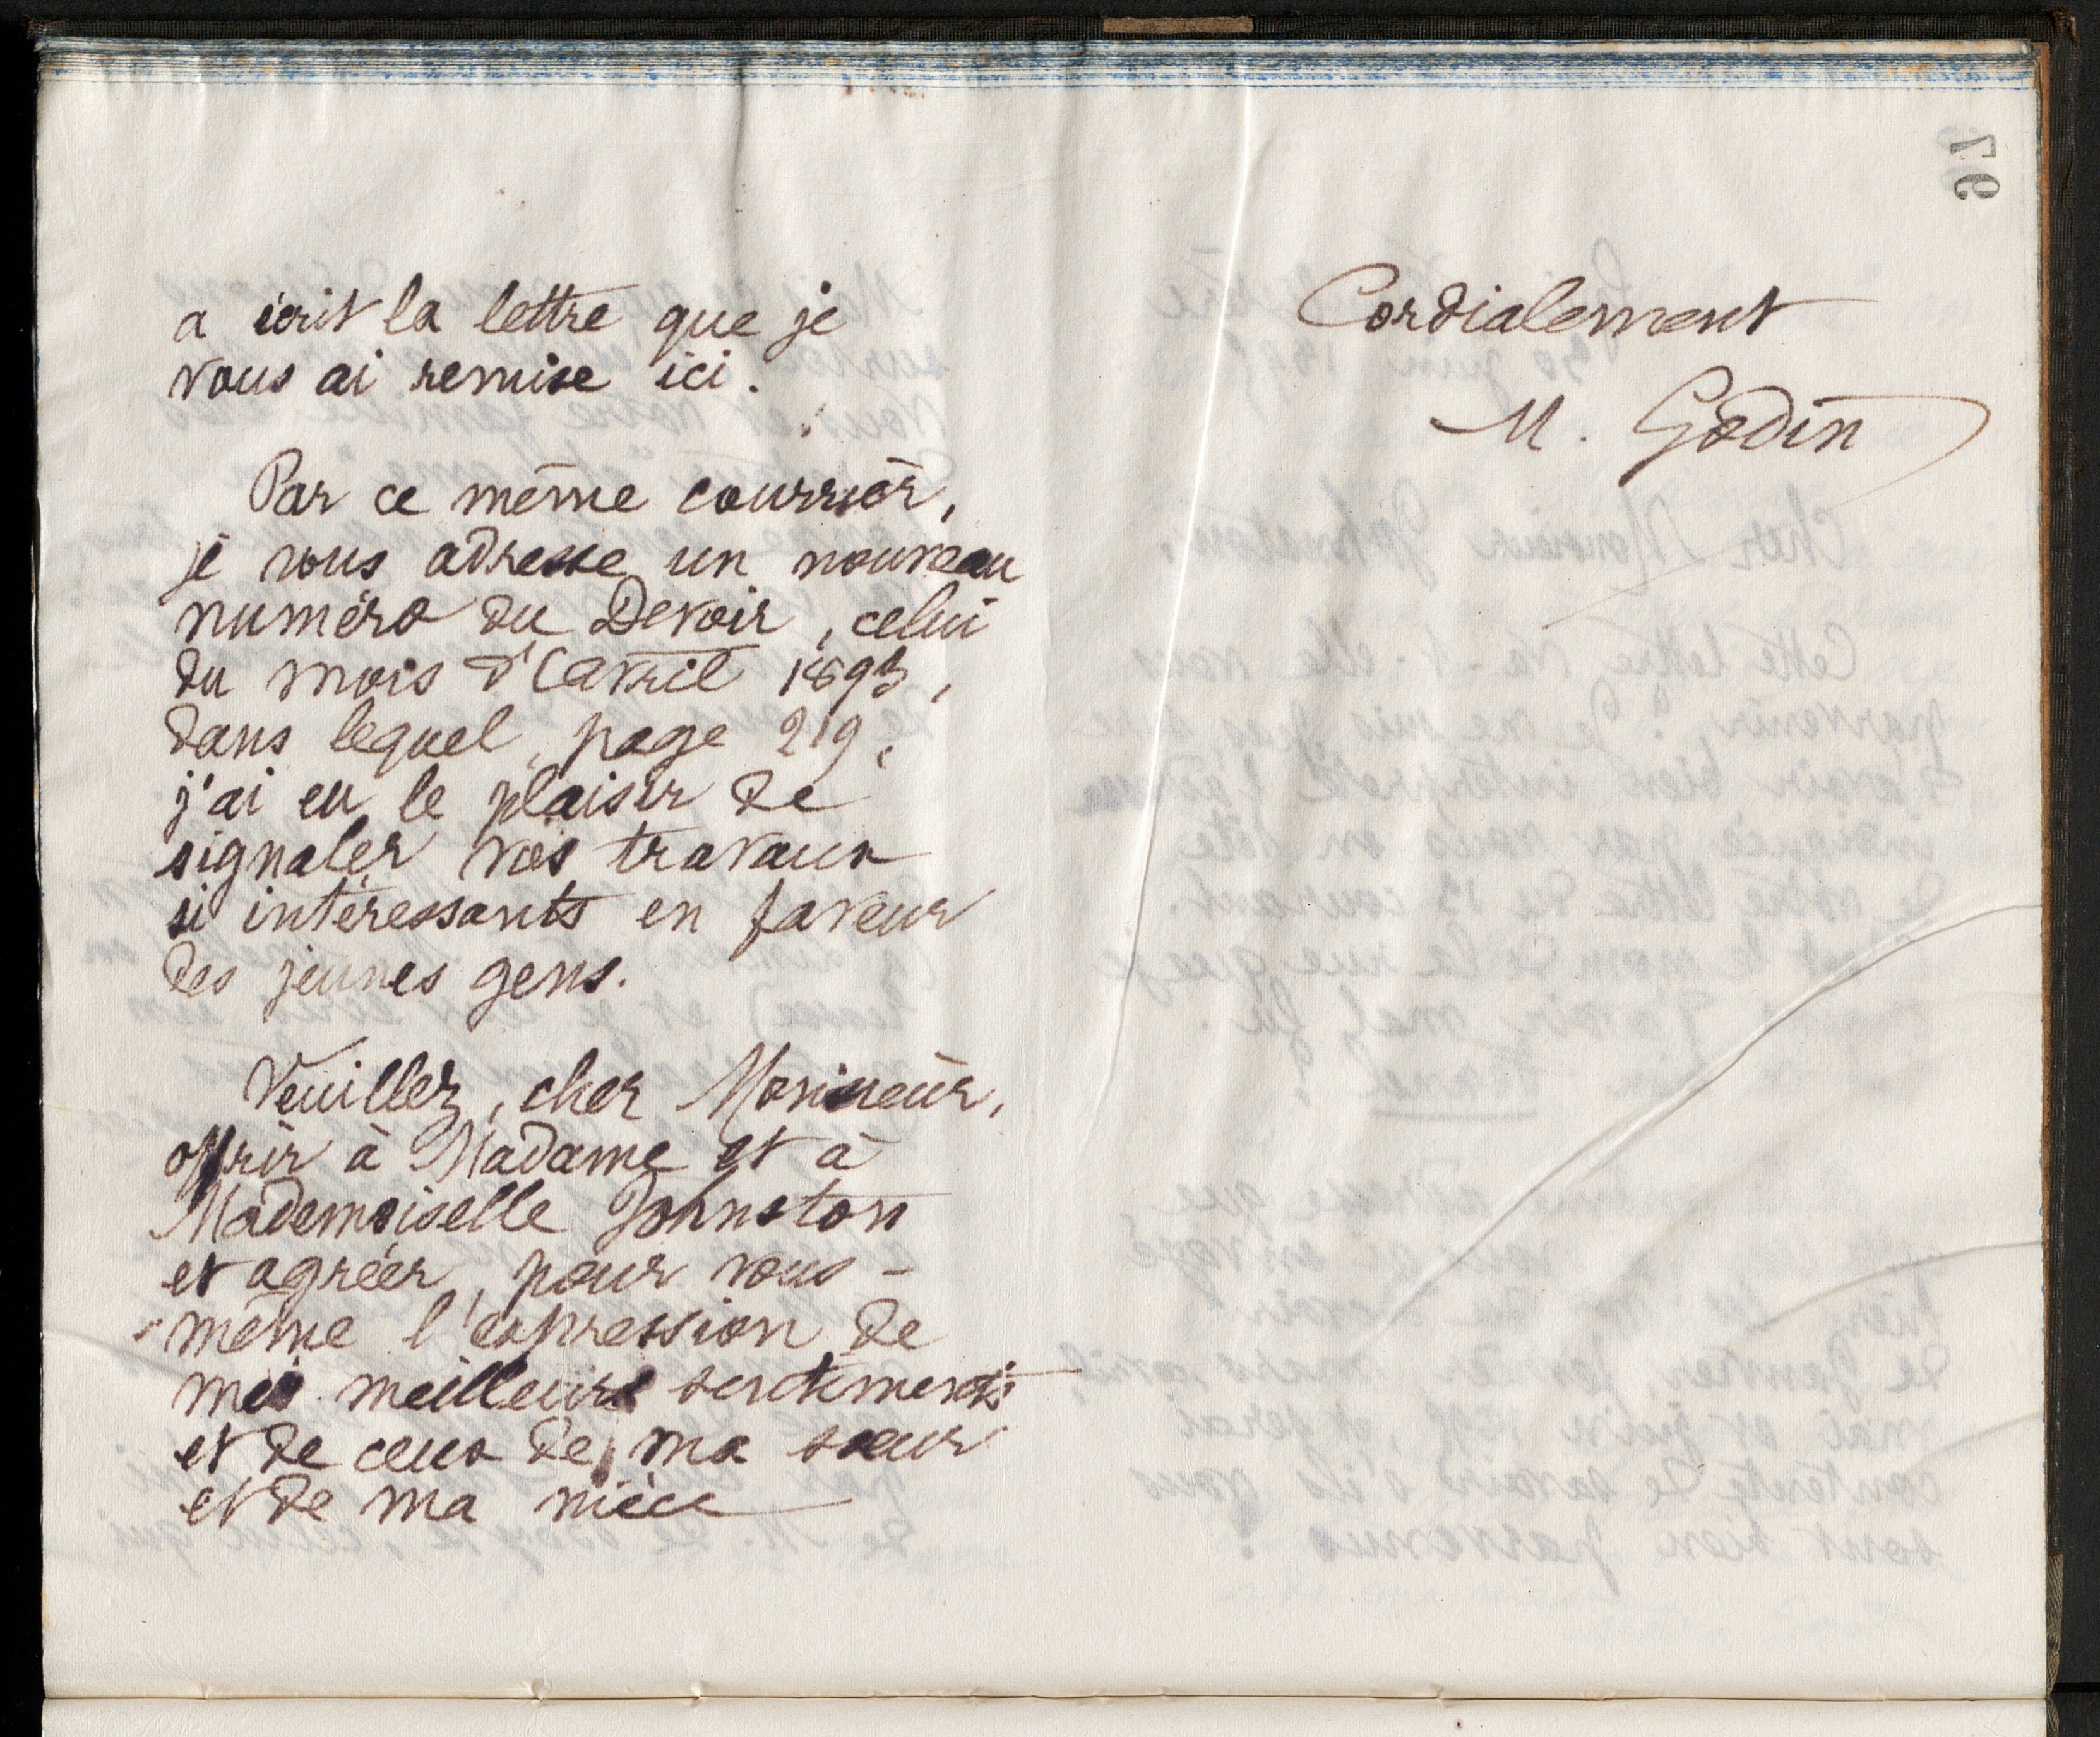 a écrit la lettre que je
vous ai remise ici.
Par ce même courrier,
je vous adresse un nouveau
numéro du Devoir, celui
du mois d'avril 1893,
dans lequel, page 219,
j'ai eu le plaisir de
signaler vos travaux
si intéressants en faveur
des jeunes gens.
Veuillez, cher Monsieur,
offrir à Madame et à
Mademoiselle Johnston
et agréer, pour vous-
même l'expression de
mes meilleurs sentiments
et de ceux de ma sœur
et de ma nièce
Cordialement
M. Godin
76